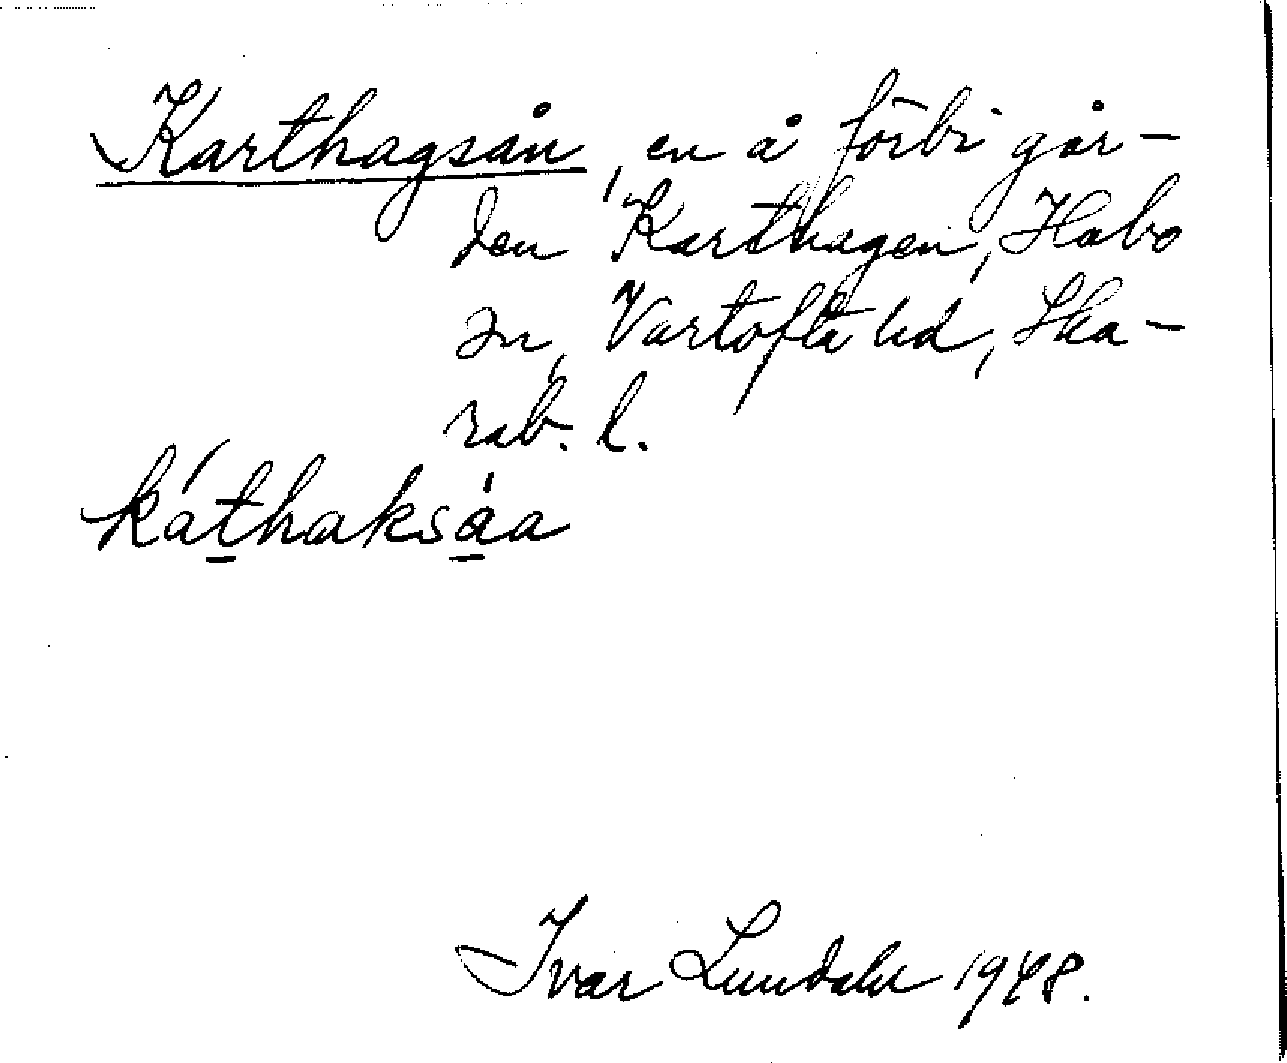 Karthagsån, en å förbi går-
den Karthagen, Habo
sn, Vartofta hd, Ska-
rab. l.
káthaksáa
Ivar Lundahl 1948.